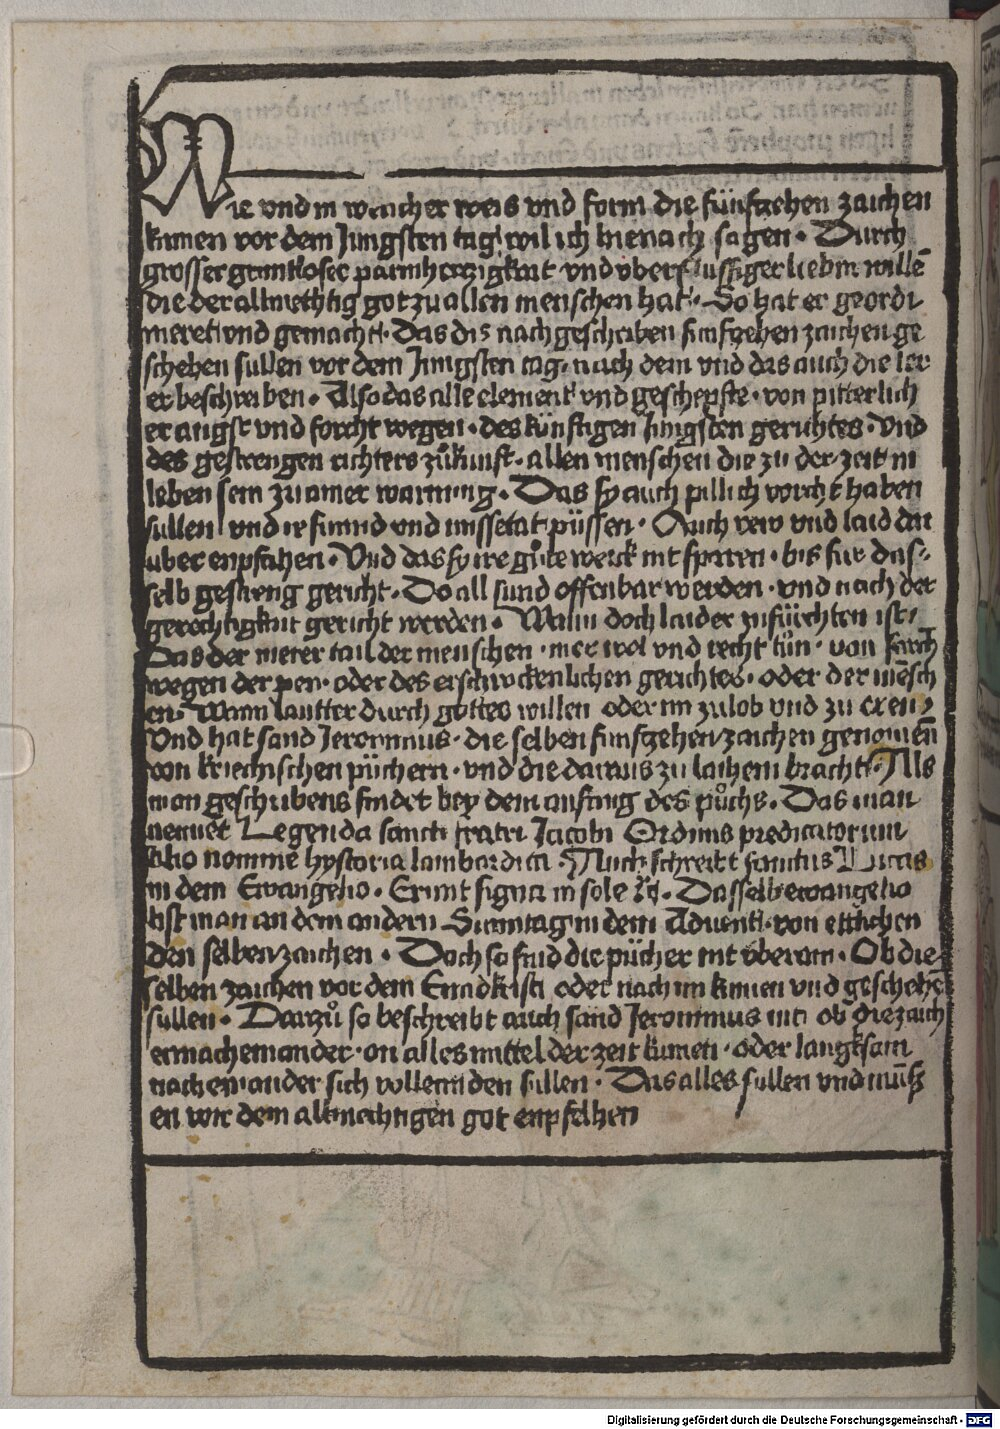 Wie vnd in welicher weis vnd form die fünfzehen zaichen
kumen vor dem Jungsten tag wil ich hienach sagen · Durch
grosser gruntloser parmherczigkait vnd vberflussiger lieb in willē
die der allmechtig got zu allen menschen hat · So hat er geordi
nieret vnd gemacht · Das dis nachgeschriben funfzehen zaichen ge
schehen sullen vor dem Jungsten tag · nach dem vnd das auch die ler
er beschreiben · Also das alle element vnd geschepfte · von pitterlich
er angst vnd forcht wegen · des künftigen Jungsten gerichtes · vnd
des gestrengen richters zůkunft · allen menschen die zu der zeit in
leben sein zu ainer warnung · Das sy auch pillich vorcht haben
sullen vnd ir sunnd vnd missetat püssen · Auch rew vnd laid dar
uber enpfahen · Vnd das sy ire gůte werck nit sparen · bis für das
selb gestreng gericht · Do all sund offenbar werden · vnd nach der
gerechtigkait gericht werden · Wann doch laider zufürchten ist
Das der merer tail der menschen · mer wol vnd recht tůn · von forch
wegen der pen · oder des erschrockenlichen gerichtes · oder der mēsch
en · Wann lautter durch gottes willen oder im zulob vnd zu eren
Vnd hat sand Jeronimus · die selben funfzehen zaichen genomen
von kriechischen püchern · vnd die daraus zu latheim bracht · Als
man geschribens findet bey dem anfang des půchs · Das man
nennet Legenda sancti fratri Jacobi Ordinis predicatorum
alio nomine hystoria lambardica · Auch schreibt sanctus Lucas
in dem Ewangelio · Erunt signa in sole ꝛc · Dasselb ewangelio
list man an dem andern Sunntag in dem Aduent · von ettlichen
den selben zaichen · Doch so sind die pücher nit vberain · Ob die
selben zaichen vor dem Enndkrist oder nach im kumen vnd geschehē
sullen · Darzů so beschreibt auch sand Jeronimus nit ob die zaich
en nacheinander · on alles mittel der zeit kumen · oder langksam
nacheinander sich vollennden sullen · Das alles sullen vnd müss
en wir dem allmechtigen got enpfelhen
Digitalisierung gefördert durch die Deutsche Forschungsgemeinschaft - DFG